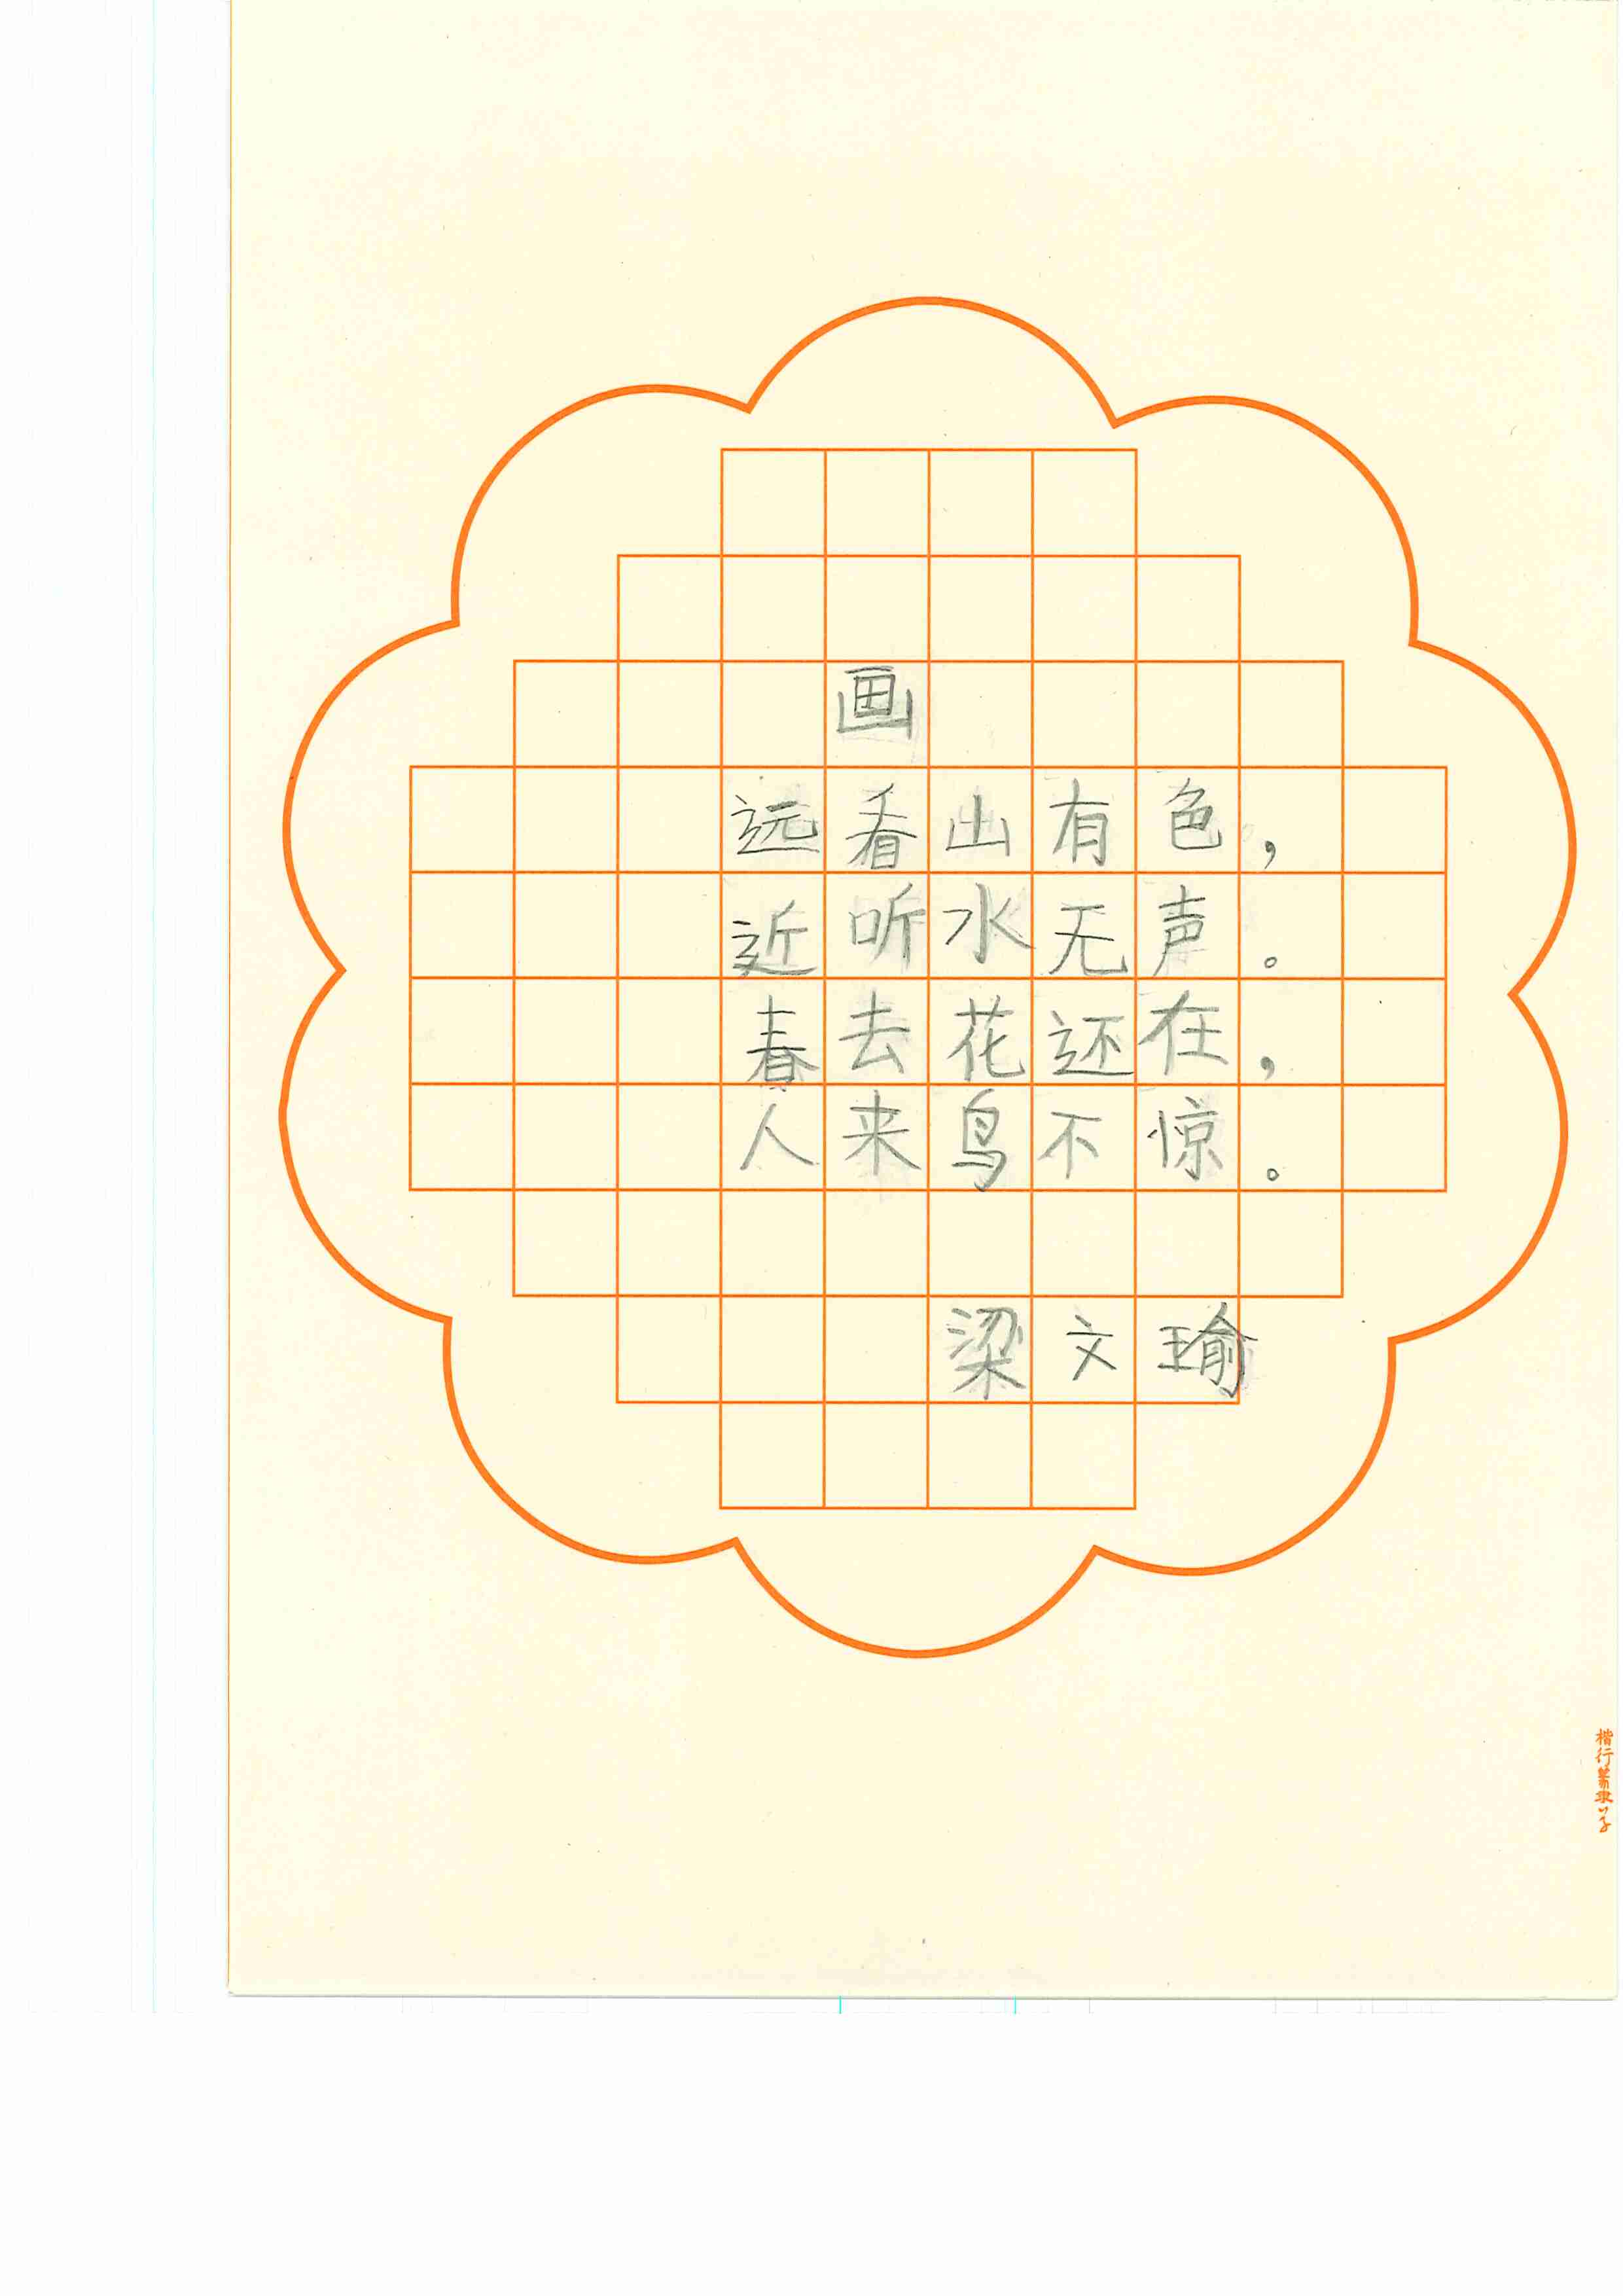 画
远看山有色，
近听水无声。
春去花还在，
人来鸟不惊。
梁文瑜
楷行篆隶